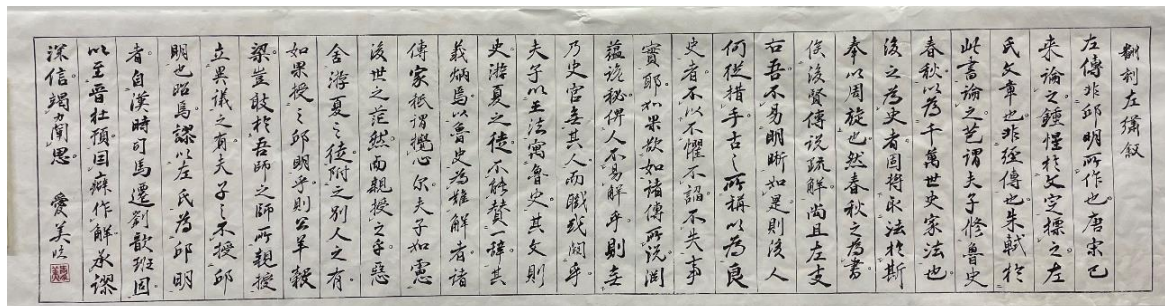 劉刻左繡叙
左傳非邱明所作也唐宋已
来論之鍾惺於文定標之左
氏文章也非經傳也朱軾於
此書論之芒謂夫子修魯史
春秋以為千萬世史家法也
後之為史者固將永法於斯
奉以周旋也然春秋之為書
俟後賢傳說疏解尚且左支
右吾不易明晰如是則後人
何從措手古之所稱以為良
史者不以不懼不諂不失事
實耶如果欲如諸傳所说閎
蘊说秘併人不易解乎則無
乃史官無其人而職或闕乎
夫子以王法寓魯史其文則
史游夏之徒不能赞一辞其
義炳焉以魯史為難解者诸
傳家抵謂攪心尔夫子如慮
後世之茫然而親授之乎惡
舍游夏之徒附之别人之有
如果授之邱明乎則公羊穀
梁豈敢於吾師之師所親授
立異議之有夫子之未授邱
明也昭焉謬以左氏為邱明
者自漢時司馬遷劉歆班固
以至晋杜預因癖作解承謬
深信竭力闡思 愛美行